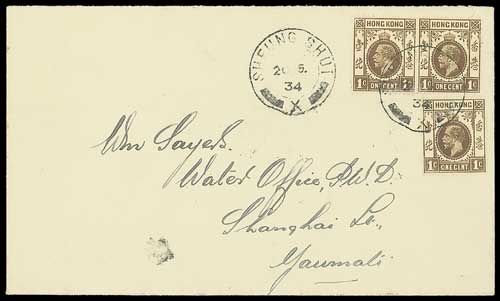 HONG KONG HONG KONG
1C ONE CENT 1C ONE CENT 1C
SHEUNG SHUI
34
X
34
HONG KONG
1C ONE CENT 1C
Wm Sayers.
Water Office, P.W.D.
Shanghai St.,
Yaumati